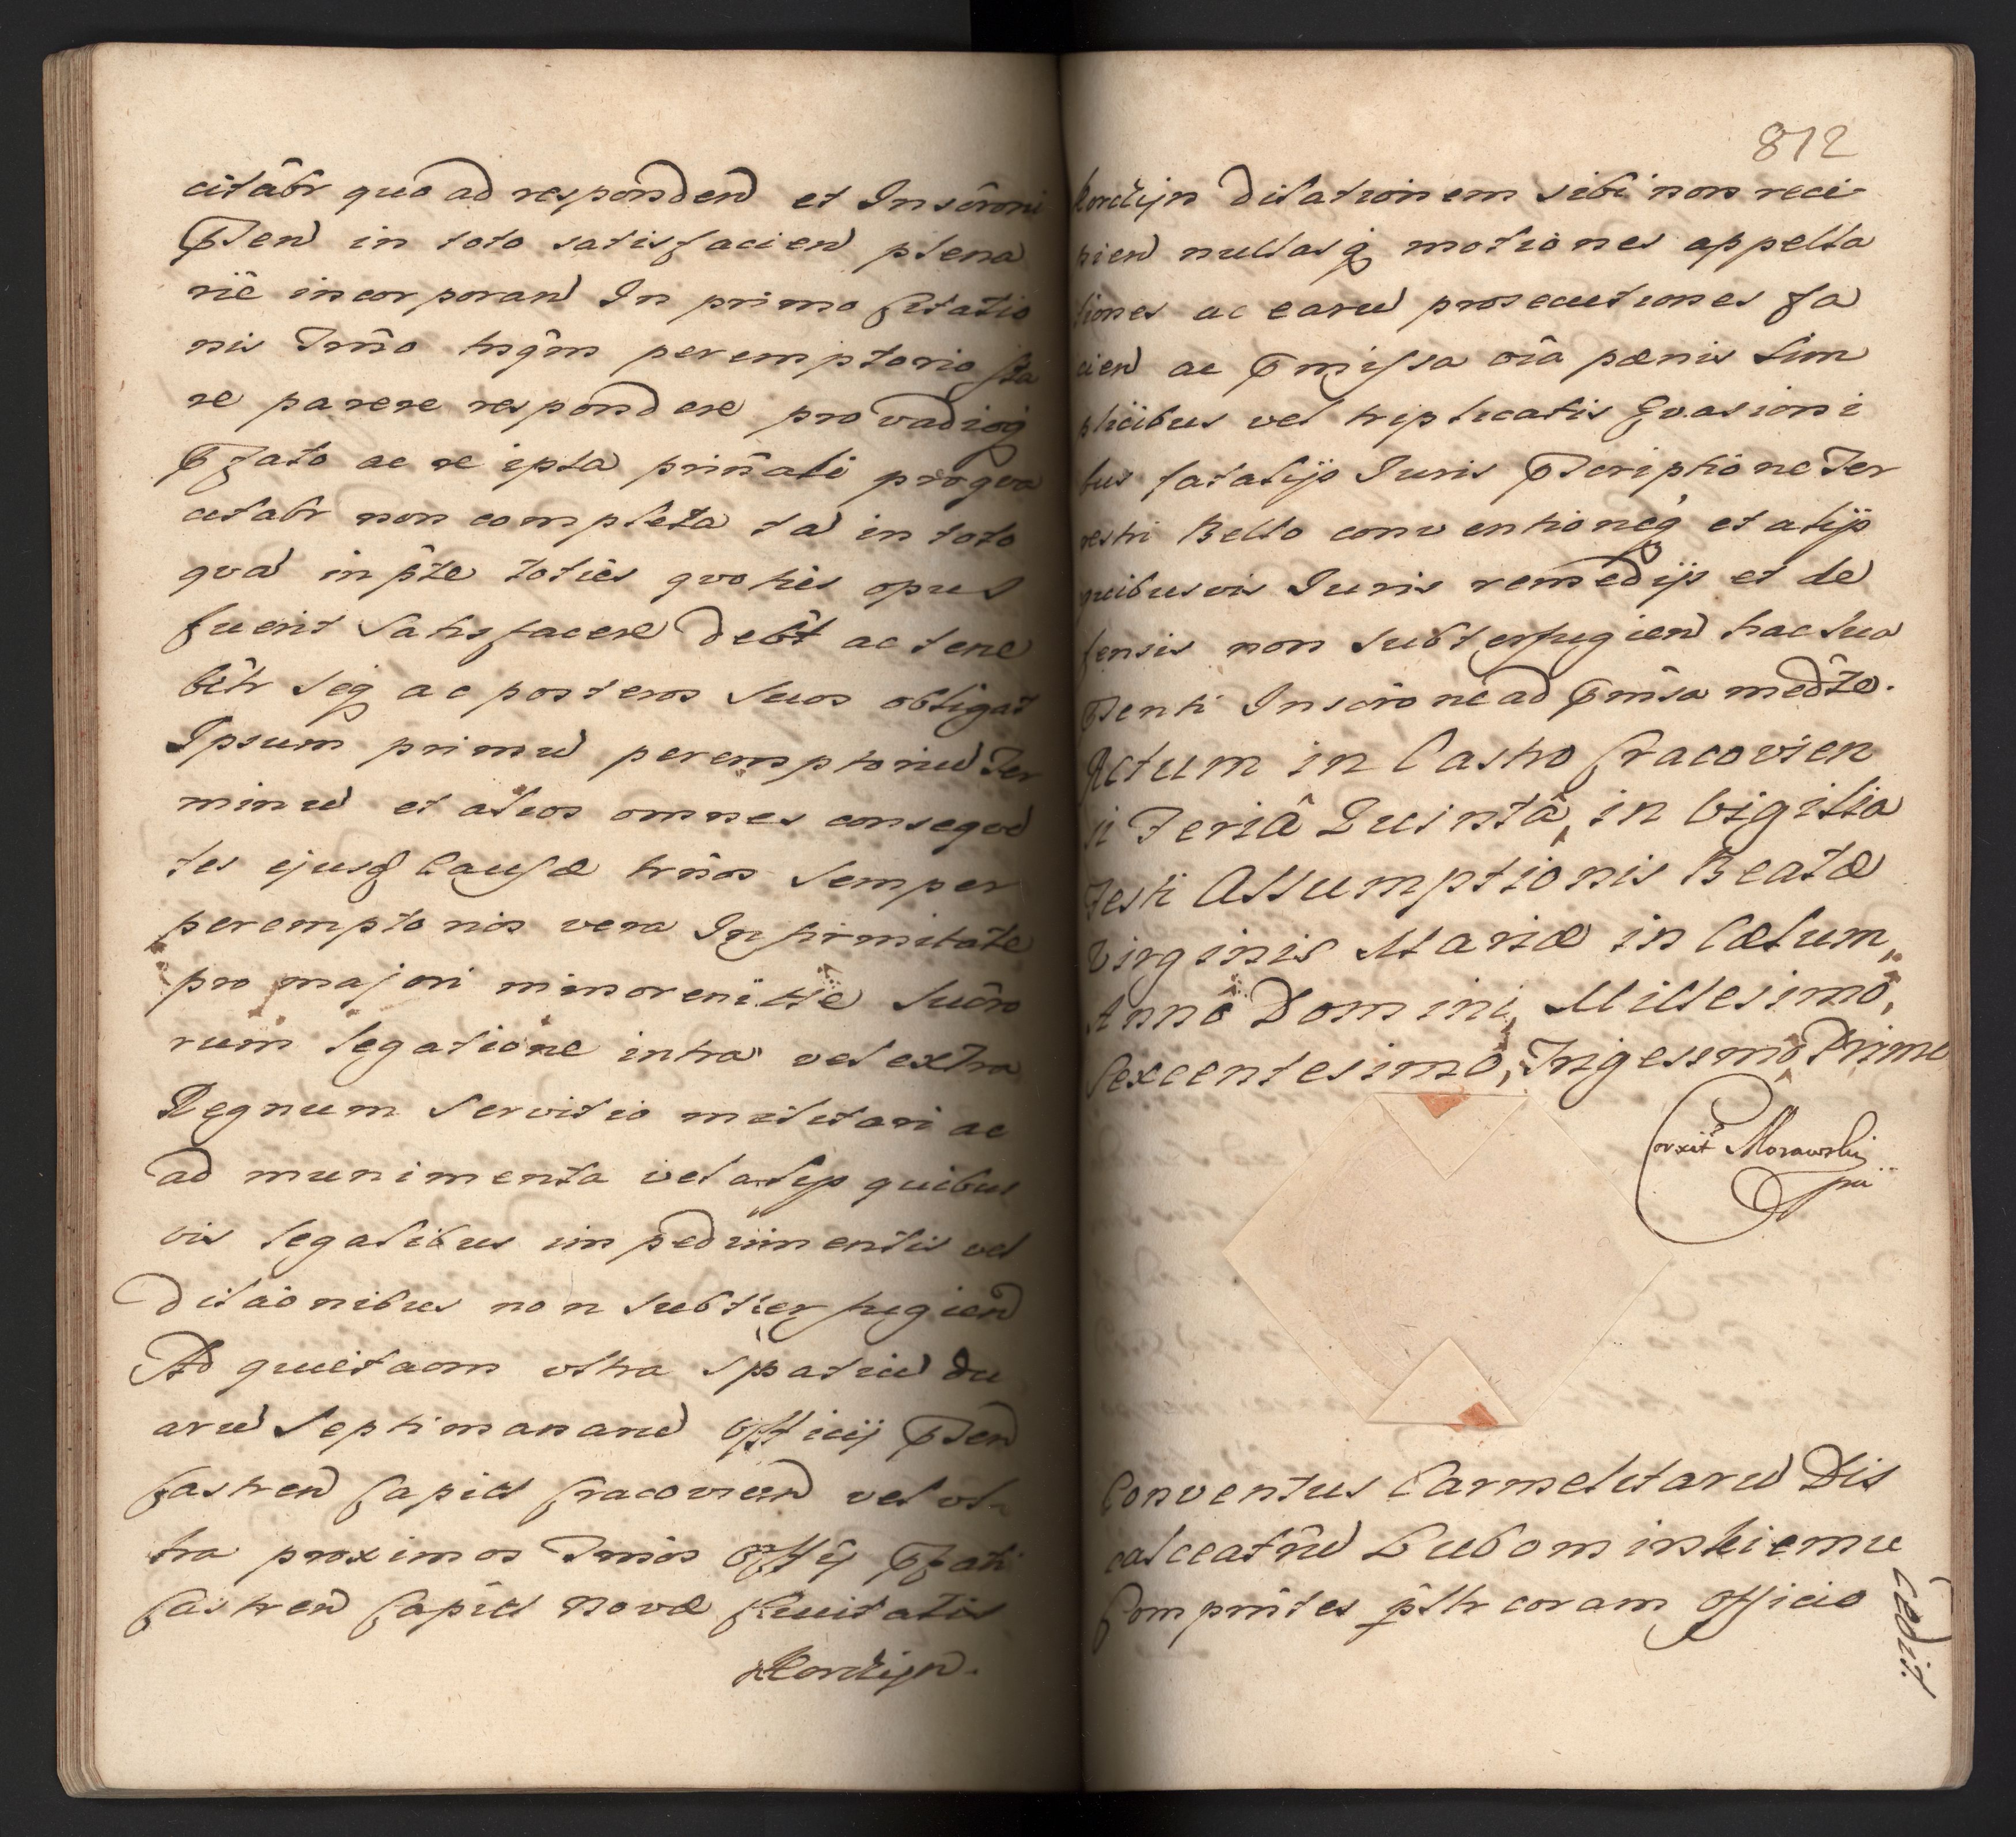 citâbr quo ad responden et Inscrôni
pñten in toto satisfacien plena
riê incorporan In primo Citatio
nis Trnîo tnqm̂ peremptorio sta
re parere respondere pro vadioq
pfato ac re ipsa prin̂ali proqva
citabr non completa ta in toto
qva in pt̂e toties qvoties opus
fuerit Satisfacere debt̂ ac tene
bitr̂ seq ac posteros suos obligat
Ipsum primu peremptoriu Ter
minu et alios omnes conseqve
tes ejusd Causæ trn̂os semper
peremptorios vera Infirmitate
pro majori minoreniîtte Nuncio
rum legatione intra vel extra
Regnum servitio militari ac
ad munimenta vel alijs quibus
vis legalibus impedimentis vel
dilaônibus non subterfugien
Ad quietaom ultra spatiu du
aru Septimanaru Officij pñten
Castren Capitl Cracovien vel ul
tra proximos Trmôs Offij pfati
Castren Capitl Novæ Civitatis
Korczyn.
812
Korczyn dilationem sibi non reci
pien nullasq motiones appella
tiones ac earu prosecutiones fa
cien ac pmissa oîa pænis sim
plicibus vel triplicatis Evasioni
bus fatalijs Iuris pscriptione Ter
restri Bello conventioneq et alijs
quibusvis Iuris remedijs et de
fensis non subterfugien hac sua
pñtenti Inscrône ad pm̂isa medt̂e.
Actum in Castro Cracovien
si Feriâ Quintâ, in Vigilia
Festi Assumptionis Beatæ
Virginis Mariæ in Cælum,
Annô Domini, Millesimô,
Sexcentesimô, Trigesimô Primo
Corxit Morawski
Conventus Carmelitaru Dis
calceatru Lubominskiemu
Comprin̂tes psltr coram Officio
Cedit.